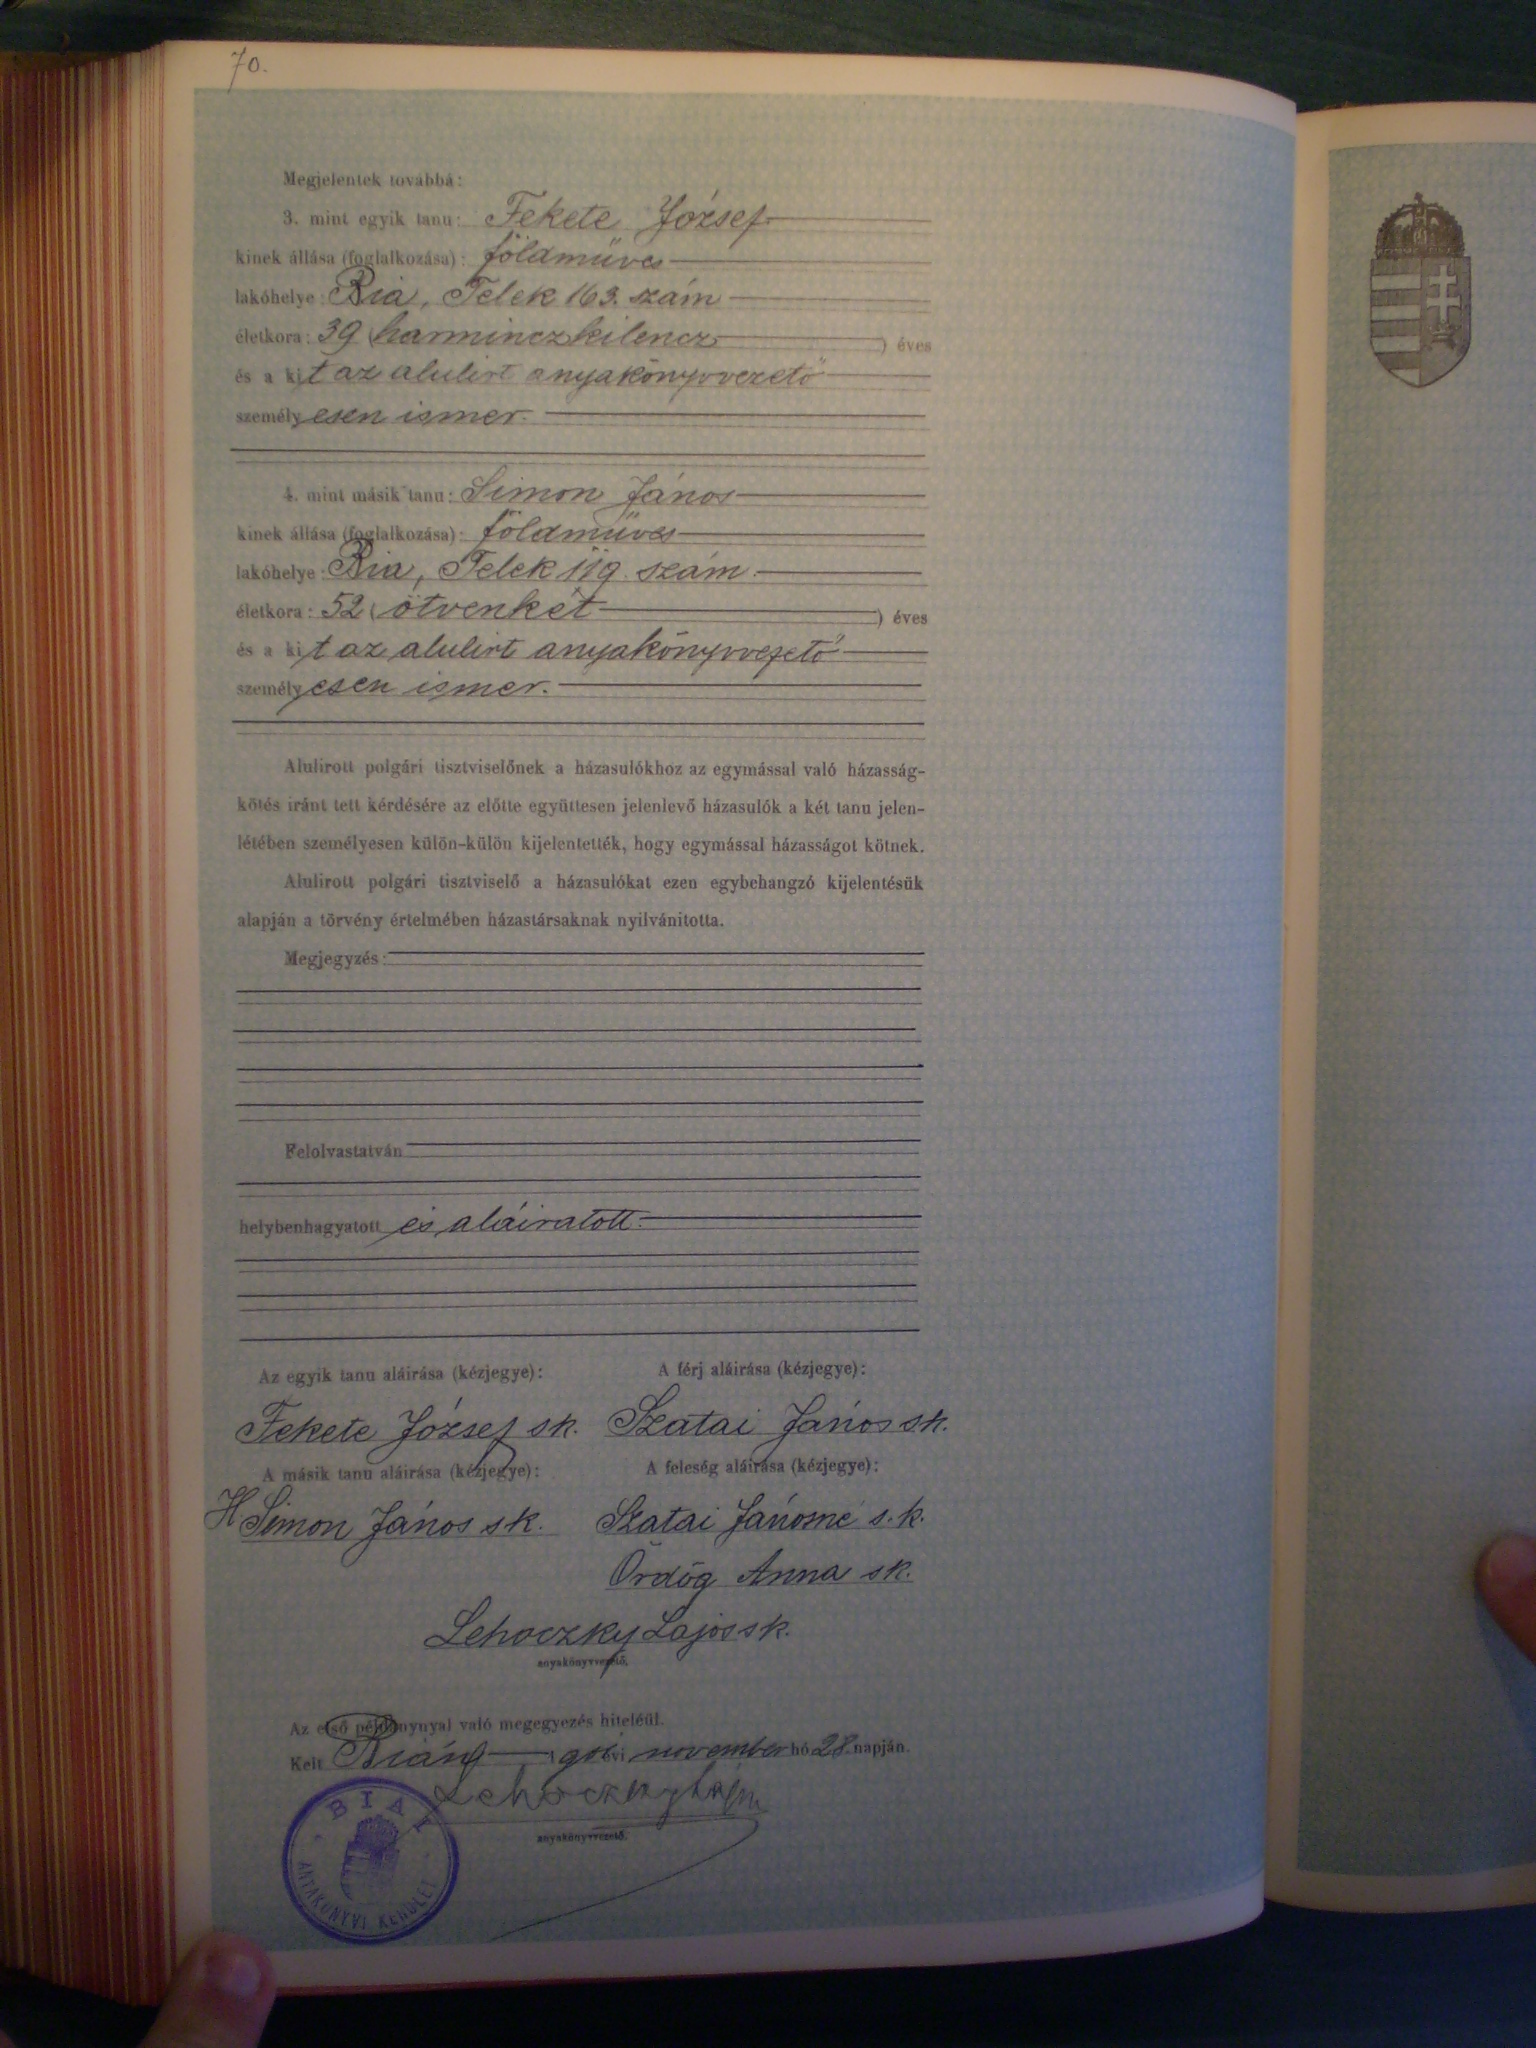 70.
Megjelentek továbbá:
3. mint egyik tanu: Fekete József
kinek állása (foglalkozása): földmüves
lakóhelye: Bia, Telek 163. szám
életkora: 39 (harminczkilencz) éves
és a kit az alulirt anyakönyvvezető
személyesen ismer.
4. mint másik tanu: Simon János
kinek állása (foglalkozása): földmüves
lakóhelye: Bia, Telek 119. szám.
életkora: 52 (ötvenkét) éves
és a kit az alulirt anyakönyvvezető
személyesen ismer.
Alulirott polgári tisztviselőnek a házasulókhoz az egymással való házasság-
kötés iránt tett kérdésére az előtte együttesen jelenlevő házasulók a két tanu jelen-
létében személyesen külön-külön kijelentették, hogy egymással házasságot kötnek.
Alulirott polgári tisztviselő a házasulókat ezen egybehangzó kijelentésük
alapján a törvény értelmében házastársaknak nyilvánitotta.
Megjegyzés:
Felolvastatván
helybenhagyatott és aláiratott.
Az egyik tanu aláirása (kézjegye): A férj aláirása (kézjegye):
Fekete József sk. Szatai János sk.
A másik tanu aláirása (kézjegye): A feleség aláirása (kézjegye):
H Simon János sk. Szatai Jánosné s.k.
Ördög Anna sk.
Lehoczky Lajos sk.
anyakönyvvezető.
Az első példánynyal való megegyezés hiteléül.
Kelt Bián 190 évi november hó 28. napján.
Lehoczky Lajos
anyakönyvvezető.
BIAI
ANYAKÖNYVI KERÜLET